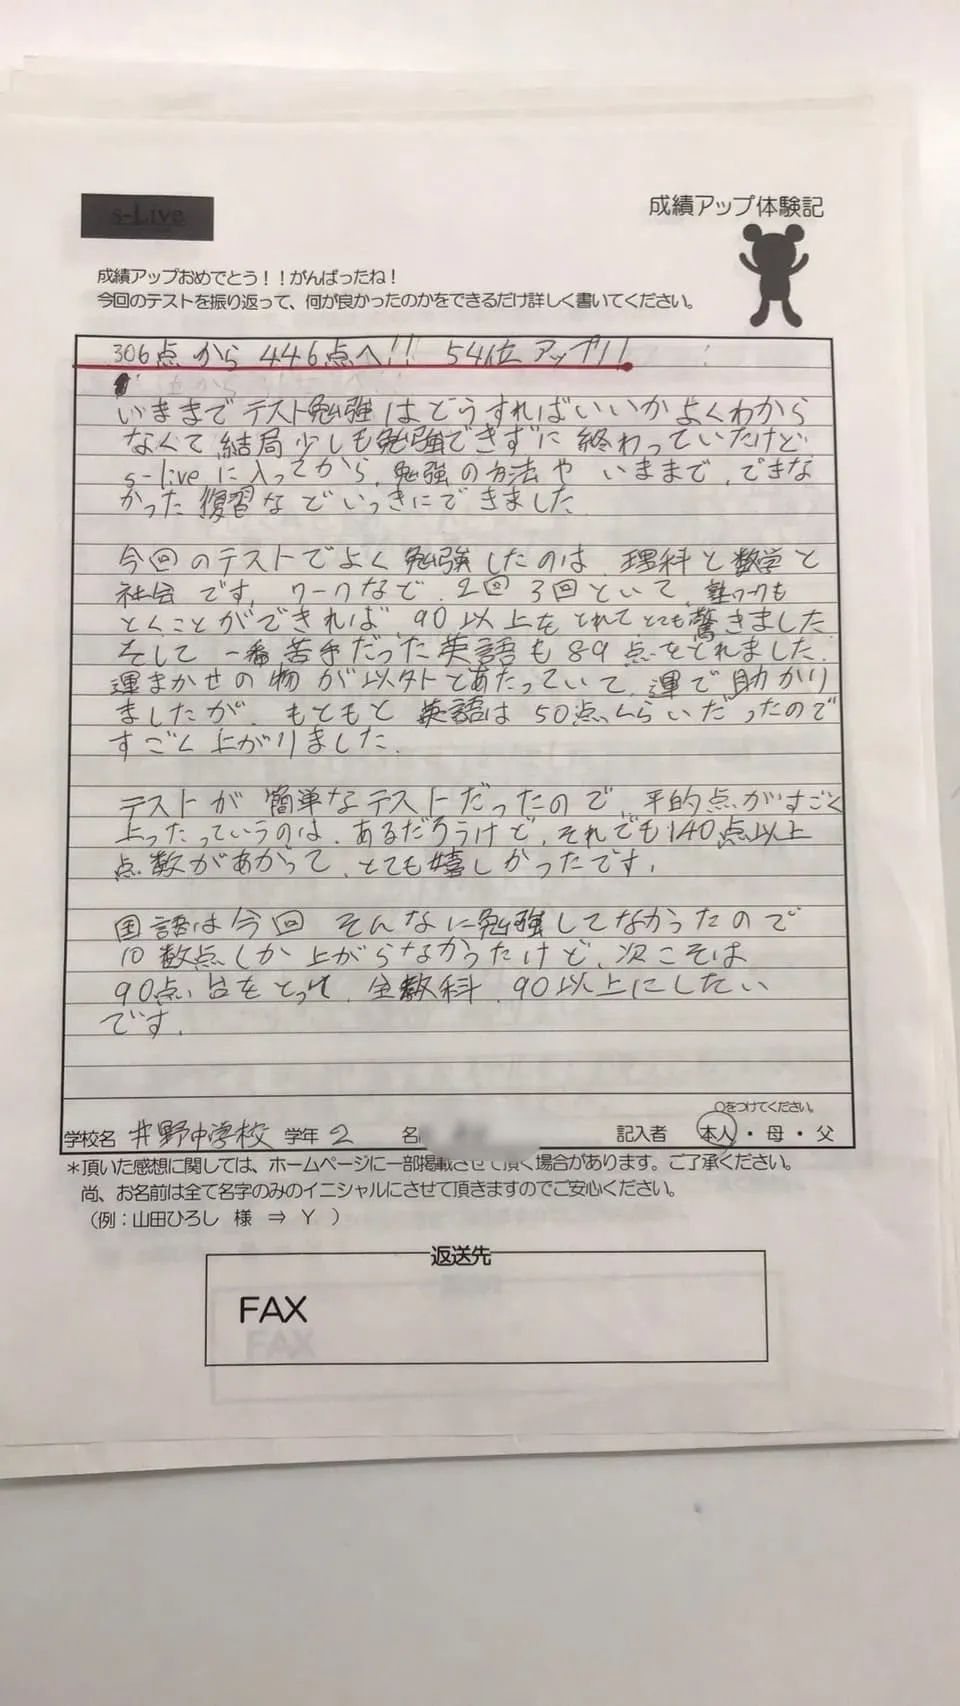 s-Live
成績アップ体験記
成績アップおめでとう！！がんばったね！
今回のテストを振り返って、何が良かったのかをできるだけ詳しく書いてください。
306点から446点へ!! 54位アップ!!
いままでテスト勉強はどうすればいいかよくわから
なくて結局少しも勉強できずに終わっていたけど、
s-liveに入ってから、勉強の方法や いままで、できな
かった復習などいっきにできました
今回のテストでよく勉強したのは、理科と数学と
社会です。ワークなど、2回3回といて、塾ワークも
とくことができれば90以上をとれてとても驚きました
そして一番苦手だった英語も89点をとれました。
運まかせの物が以外とあたっていて、運で助かり
ましたが、もともと英語は50点くらいだったので
すごく上がりました。
テストが簡単なテストだったので、平均点がすごく
上ったっていうのは、あるだろうけど、それでも140点以上
点数があがって、とても嬉しかったです。
国語は今回そんなに勉強してなかったので
10数点しか上がらなかったけど、次こそは
90点台をとって、全教科、90以上にしたい
です。
○をつけてください。
学校名 井野中学校 学年 2 名 記入者 本人・母・父
＊頂いた感想に関しては、ホームページに一部掲載させて頂く場合があります。ご了承ください。
尚、お名前は全て名字のみのイニシャルにさせて頂きますのでご安心ください。
（例：山田ひろし 様 ⇒ Y ）
返送先
FAX